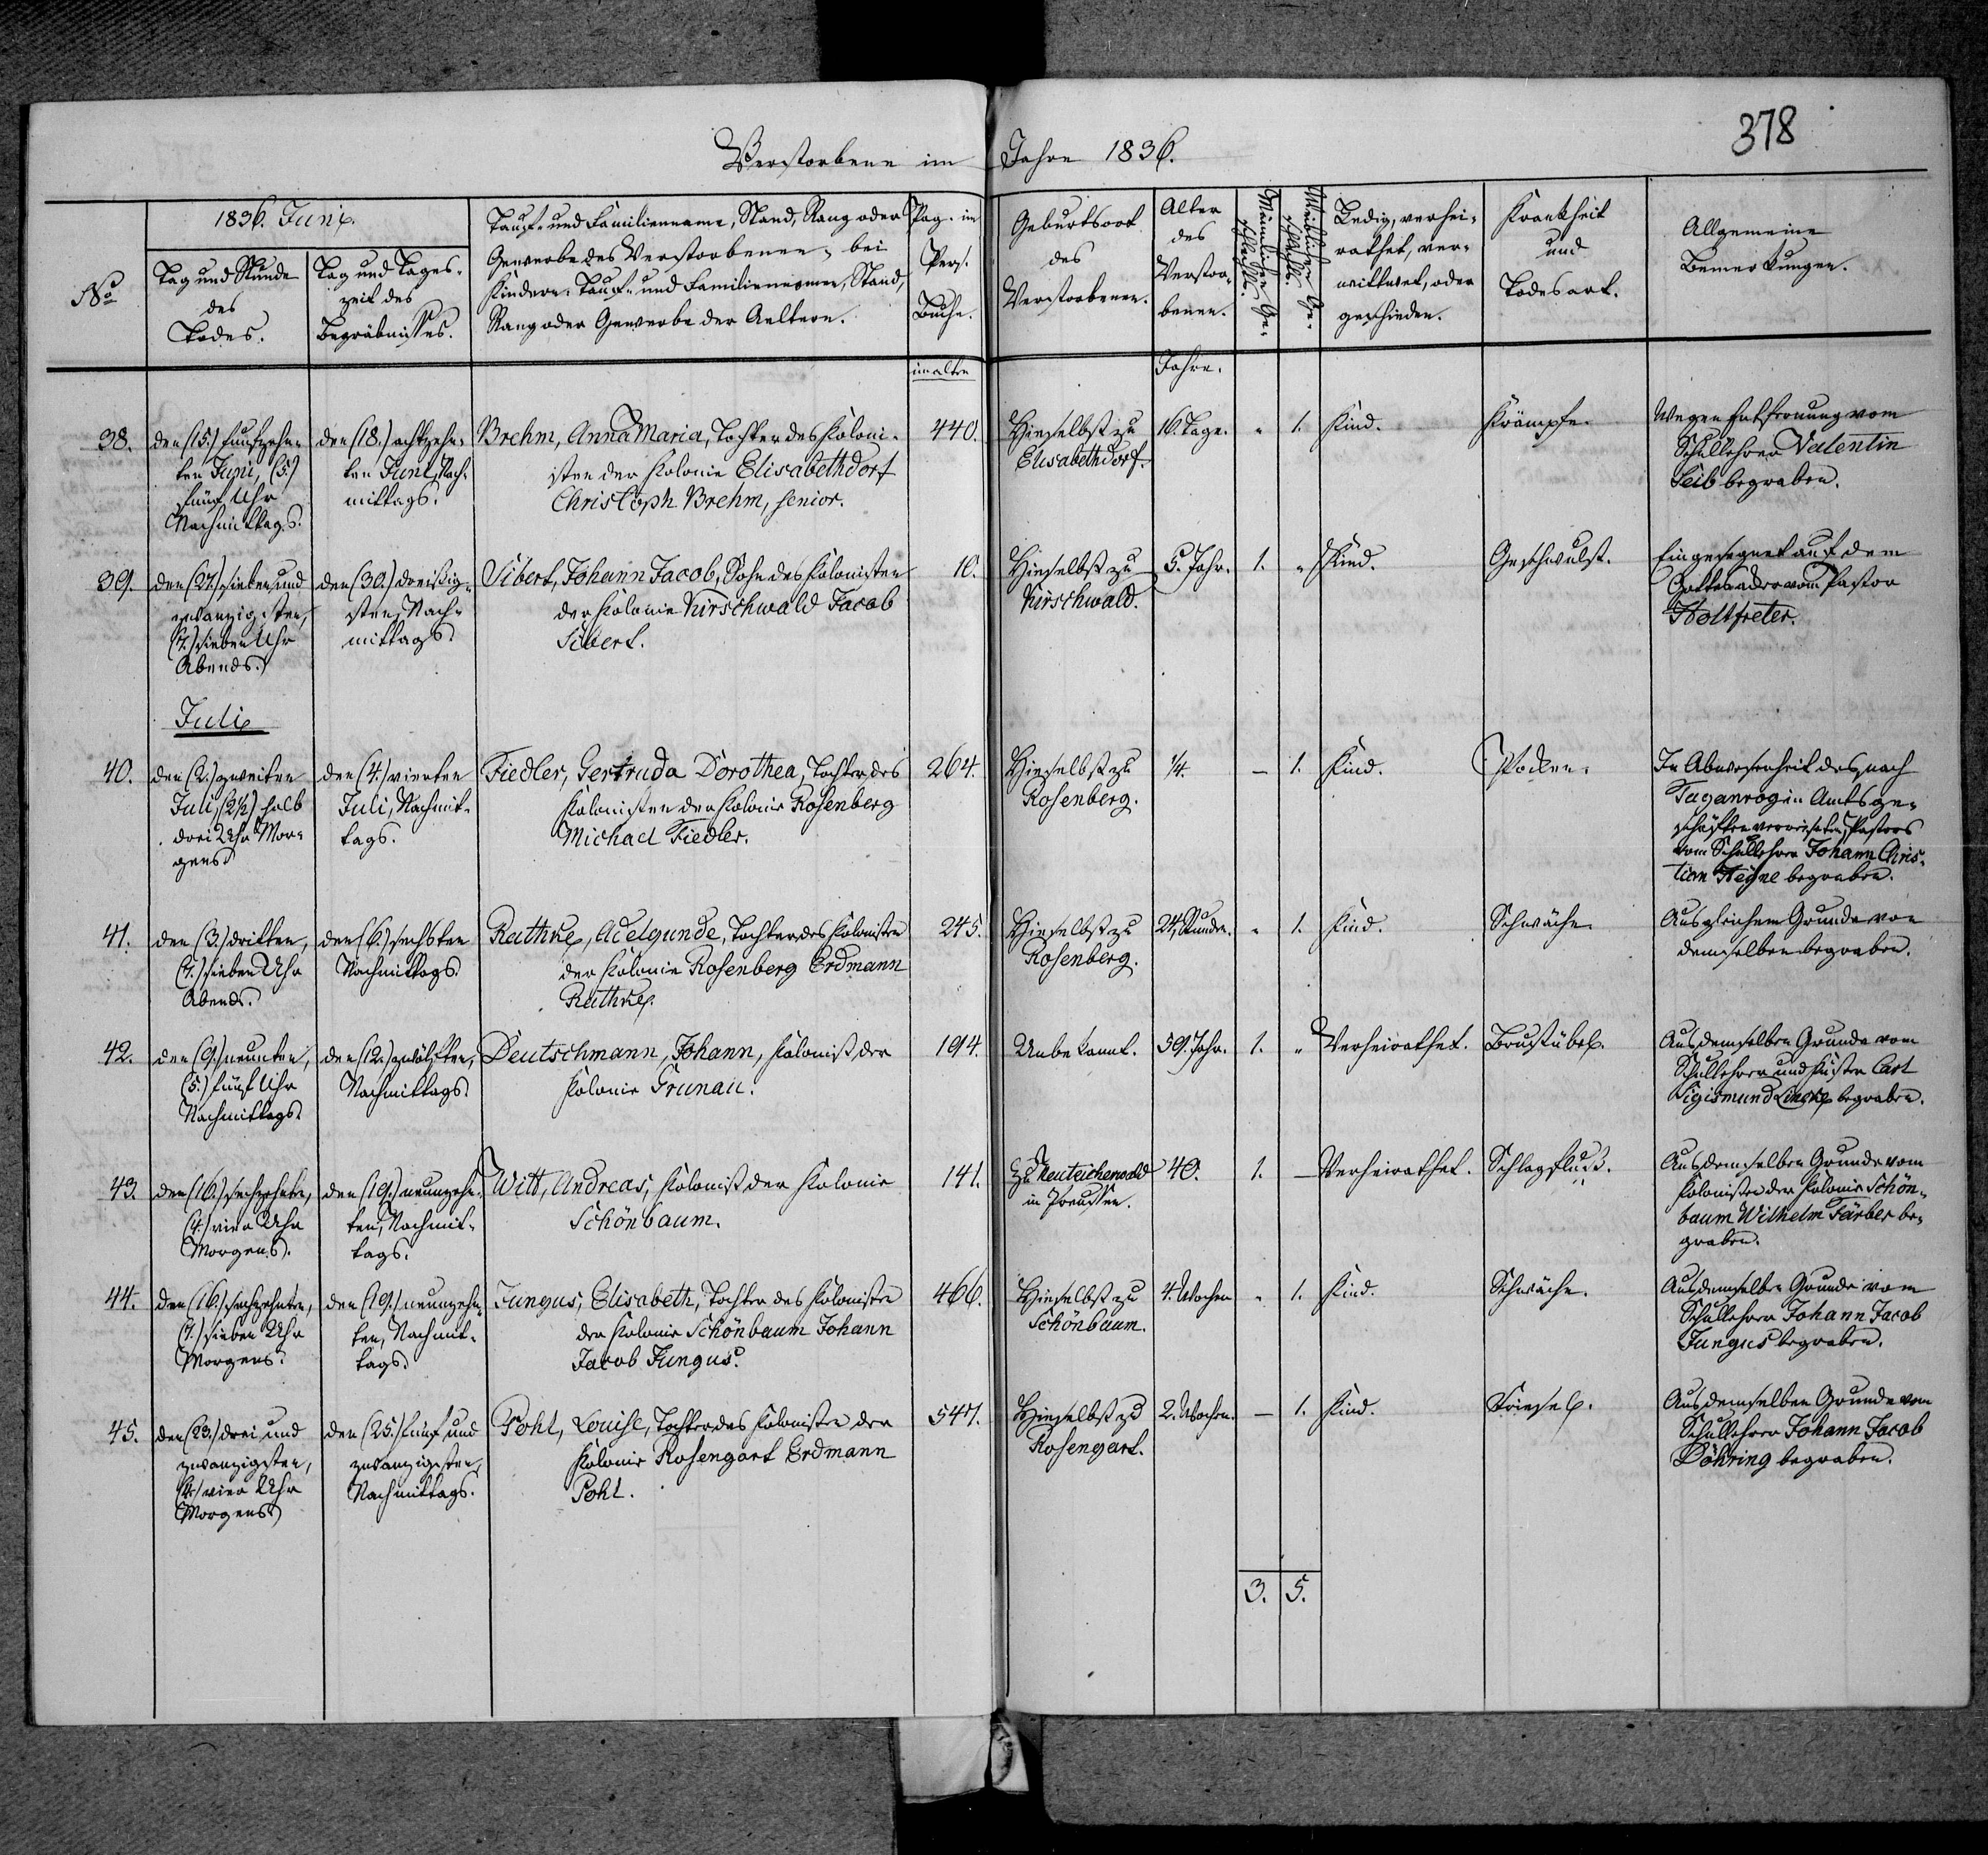 378
Verstorbene im Jahre 1836.
No
1836. Juni.
Tag und Stunde
des
Todes.
Tag und Tages-
zeit des
Begräbnißes.
Tauf- und Familienname, Stand, Rang oder
Gewerbe des Verstorbenen, bei
Kindern: Tauf- und Familiennamen, Stand,
Rang oder Gewerbe der Aeltern.
Pag. im
Pers.
Buche.
Geburtsort
des
Verstorbenen.
Alter
des
Verstor-
benen.
Männlichen Ge-
schlechts.
Weiblichen Ge-
schlechts.
Ledig, verhei-
rathet, ver-
wittwet, oder
geschieden.
Krankheit
und
Todesart.
Allgemeine
Bemerkungen.
im alten
Jahre.
38.
den (15.) fünfzehn-
ten Juni, (5.)
fünf Uhr
Nachmittags.
den (18.) achtzehn-
ten Juni, Nach-
mittags.
Brehm, Anna Maria, Tochter des Koloni-
sten der Kolonie Elisabethdorf
Christoph Brehm, senior.
440.
Hieselbst zu
Elisabethdorf.
16. Tage.
"
1.
Kind.
Krämpfe.
Wegen Entfernung vom
Schullehrer Valentin
Seib begraben.
39.
den (27.) sieben und
zwanzigsten,
(7.) sieben Uhr
Abends.
den (30.) dreißig-
sten, Nach-
mittags.
Sibert, Johann Jacob, Sohn des Kolonisten
der Kolonie Kirschwald Jacob
Sibert.
10.
Hieselbst zu
Kirschwald.
5. Jahr.
1.
"
Kind.
Geschwulst.
Eingesegnet auf dem
Gottesacker vom Pastor
Holtfreter.
Juli
40.
den (2.) zweiten
Juli, (2½) halb
drei Uhr Mor-
gens.
den (4.) vierten
Juli, Nachmit-
tags.
Fiedler, Gertruda Dorothea, Tochter des
Kolonisten der Kolonie Rosenberg
Michael Fiedler.
264.
Hieselbst zu
Rosenberg.
¼.
–
1.
Kind.
Pocken.
In Abwesenheit des nach
Taganrog in Amtsge-
schäften verreiseten Pastors
vom Schullehrer Johann Chris-
tian Heyne begraben.
41.
den (3.) dritten,
(7.) sieben Uhr
Abends.
den (6.) sechsten
Nachmittags.
Rathke, Adelgunde, Tochter des Kolonisten
der Kolonie Rosenberg Erdmann
Rathke.
245.
Hieselbst zu
Rosenberg.
24, Stunden.
"
1.
Kind.
Schwäche.
Aus gleichem Grunde von
demselben begraben.
42.
den (9.) neunten,
(5.) fünf Uhr
Nachmittags.
den (12.) zwölften,
Nachmittags.
Deutschmann, Johann, Kolonist der
Kolonie Grunau.
194.
Unbekannt.
59. Jahr.
1.
"
Verheirathet.
Brustübel.
Aus demselben Grunde vom
Schullehrer und Küster Carl
Sigismund begraben.
43.
den (16.) sechzehnten,
(4.) vier Uhr
Morgens.
den (19.) neunzehn-
ten, Nachmit-
tags.
Witt, Andreas, Kolonist der Kolonie
Schönbaum.
141.
Zu Neuteicherwald
in Preußen.
40.
1.
–
Verheirathet.
Schlagfluß.
Aus demselben Grunde vom
Kolonisten der Kolonie Schön-
baum Wilhelm Färber be-
graben.
44.
den (16.) sechzehnten,
(7.) sieben Uhr
Morgens.
den (19.) neunzehn-
ten, Nachmit-
tags.
Jungus, Elisabeth, Tochter des Kolonisten
der Kolonie Schönbaum Johann
Jacob Jungus.
466.
Hieselbst zu
Schönbaum.
4. Wochen
"
1.
Kind.
Schwäche.
Aus demselben Grunde vom
Schullehrer Johann Jacob
Jungus begraben.
45.
den (23.) drei und
zwanzigsten,
(4.) vier Uhr
Morgens.
den (25.) fünf und
zwanzigsten,
Nachmittags.
Pohl, Louise, Tochter des Kolonisten der
Kolonie Rosengart Erdmann
Pohl.
547.
Hieselbst zu
Rosengart.
2. Wochen.
–
1.
Kind.
Friesel.
Aus demselben Grunde vom
Schullehrer Johann Jacob
Döhring begraben.
3. 5.